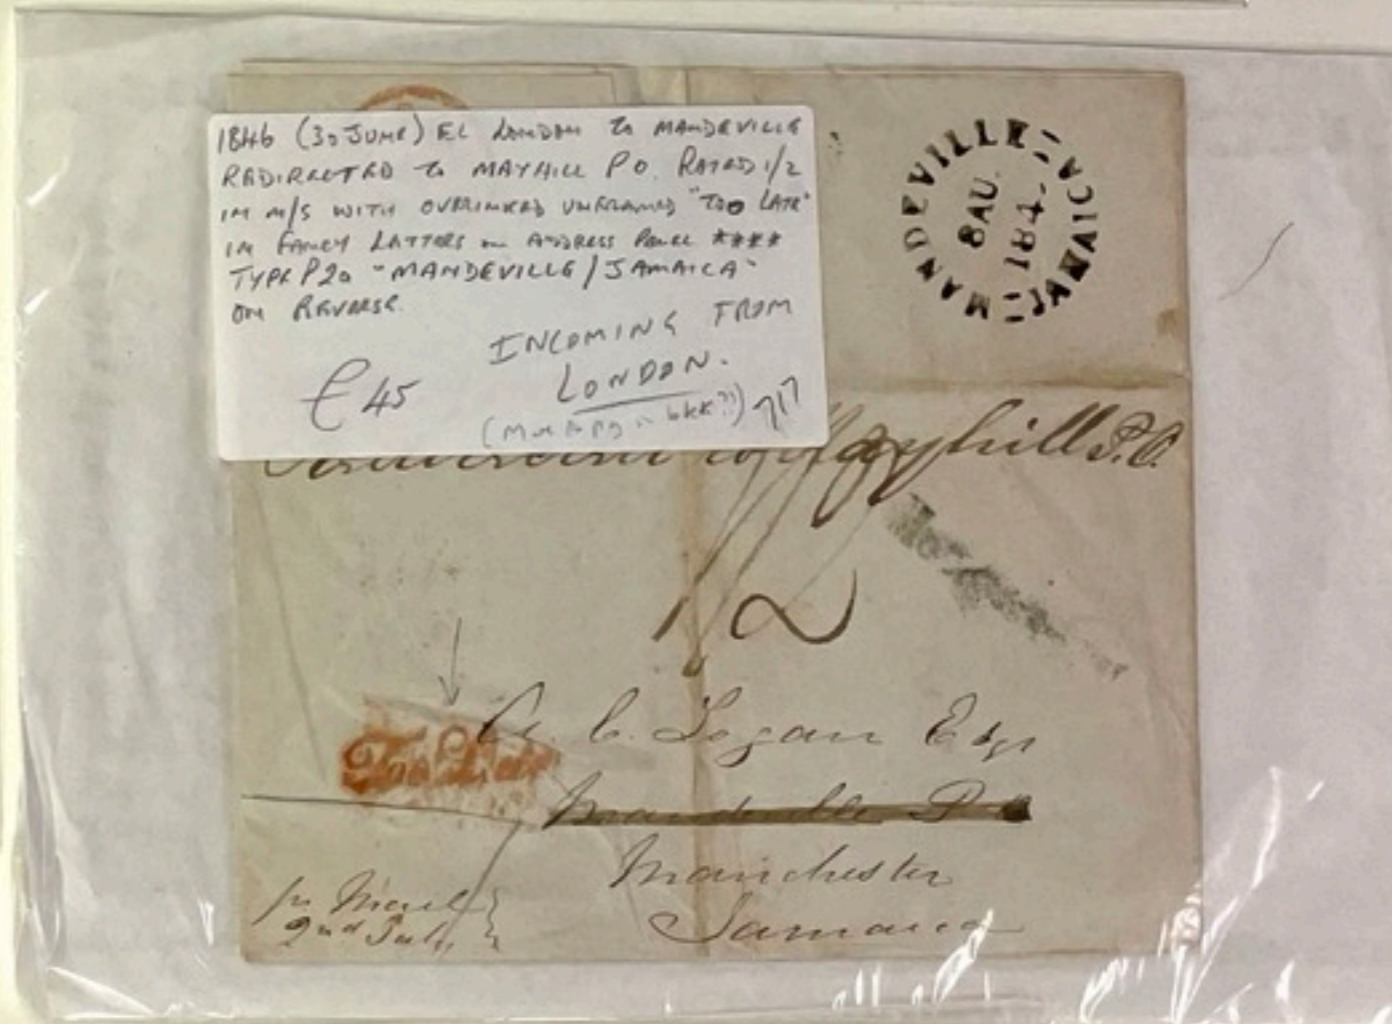 1846 (30 JUNE) EL LONDON to MANDEVILLE
REDIRECTED to MAYHILL P O. RATED 1/2
IN M/S WITH OVERINKED UNFRAMED "TOO LATE"
IN FANCY LETTERS on ADDRESS PANEL ****
TYPE P20 "MANDEVILLE/JAMAICA"
ON REVERSE.
INCOMING FROM
LONDON.
£45
717
MANDEVILLE JAMAICA
8 AU.
184-
to Mayhill P.O.
1/2
C. Logan Esqr
Too Late
Mandeville P O
Manchester
Jamaica
2nd July